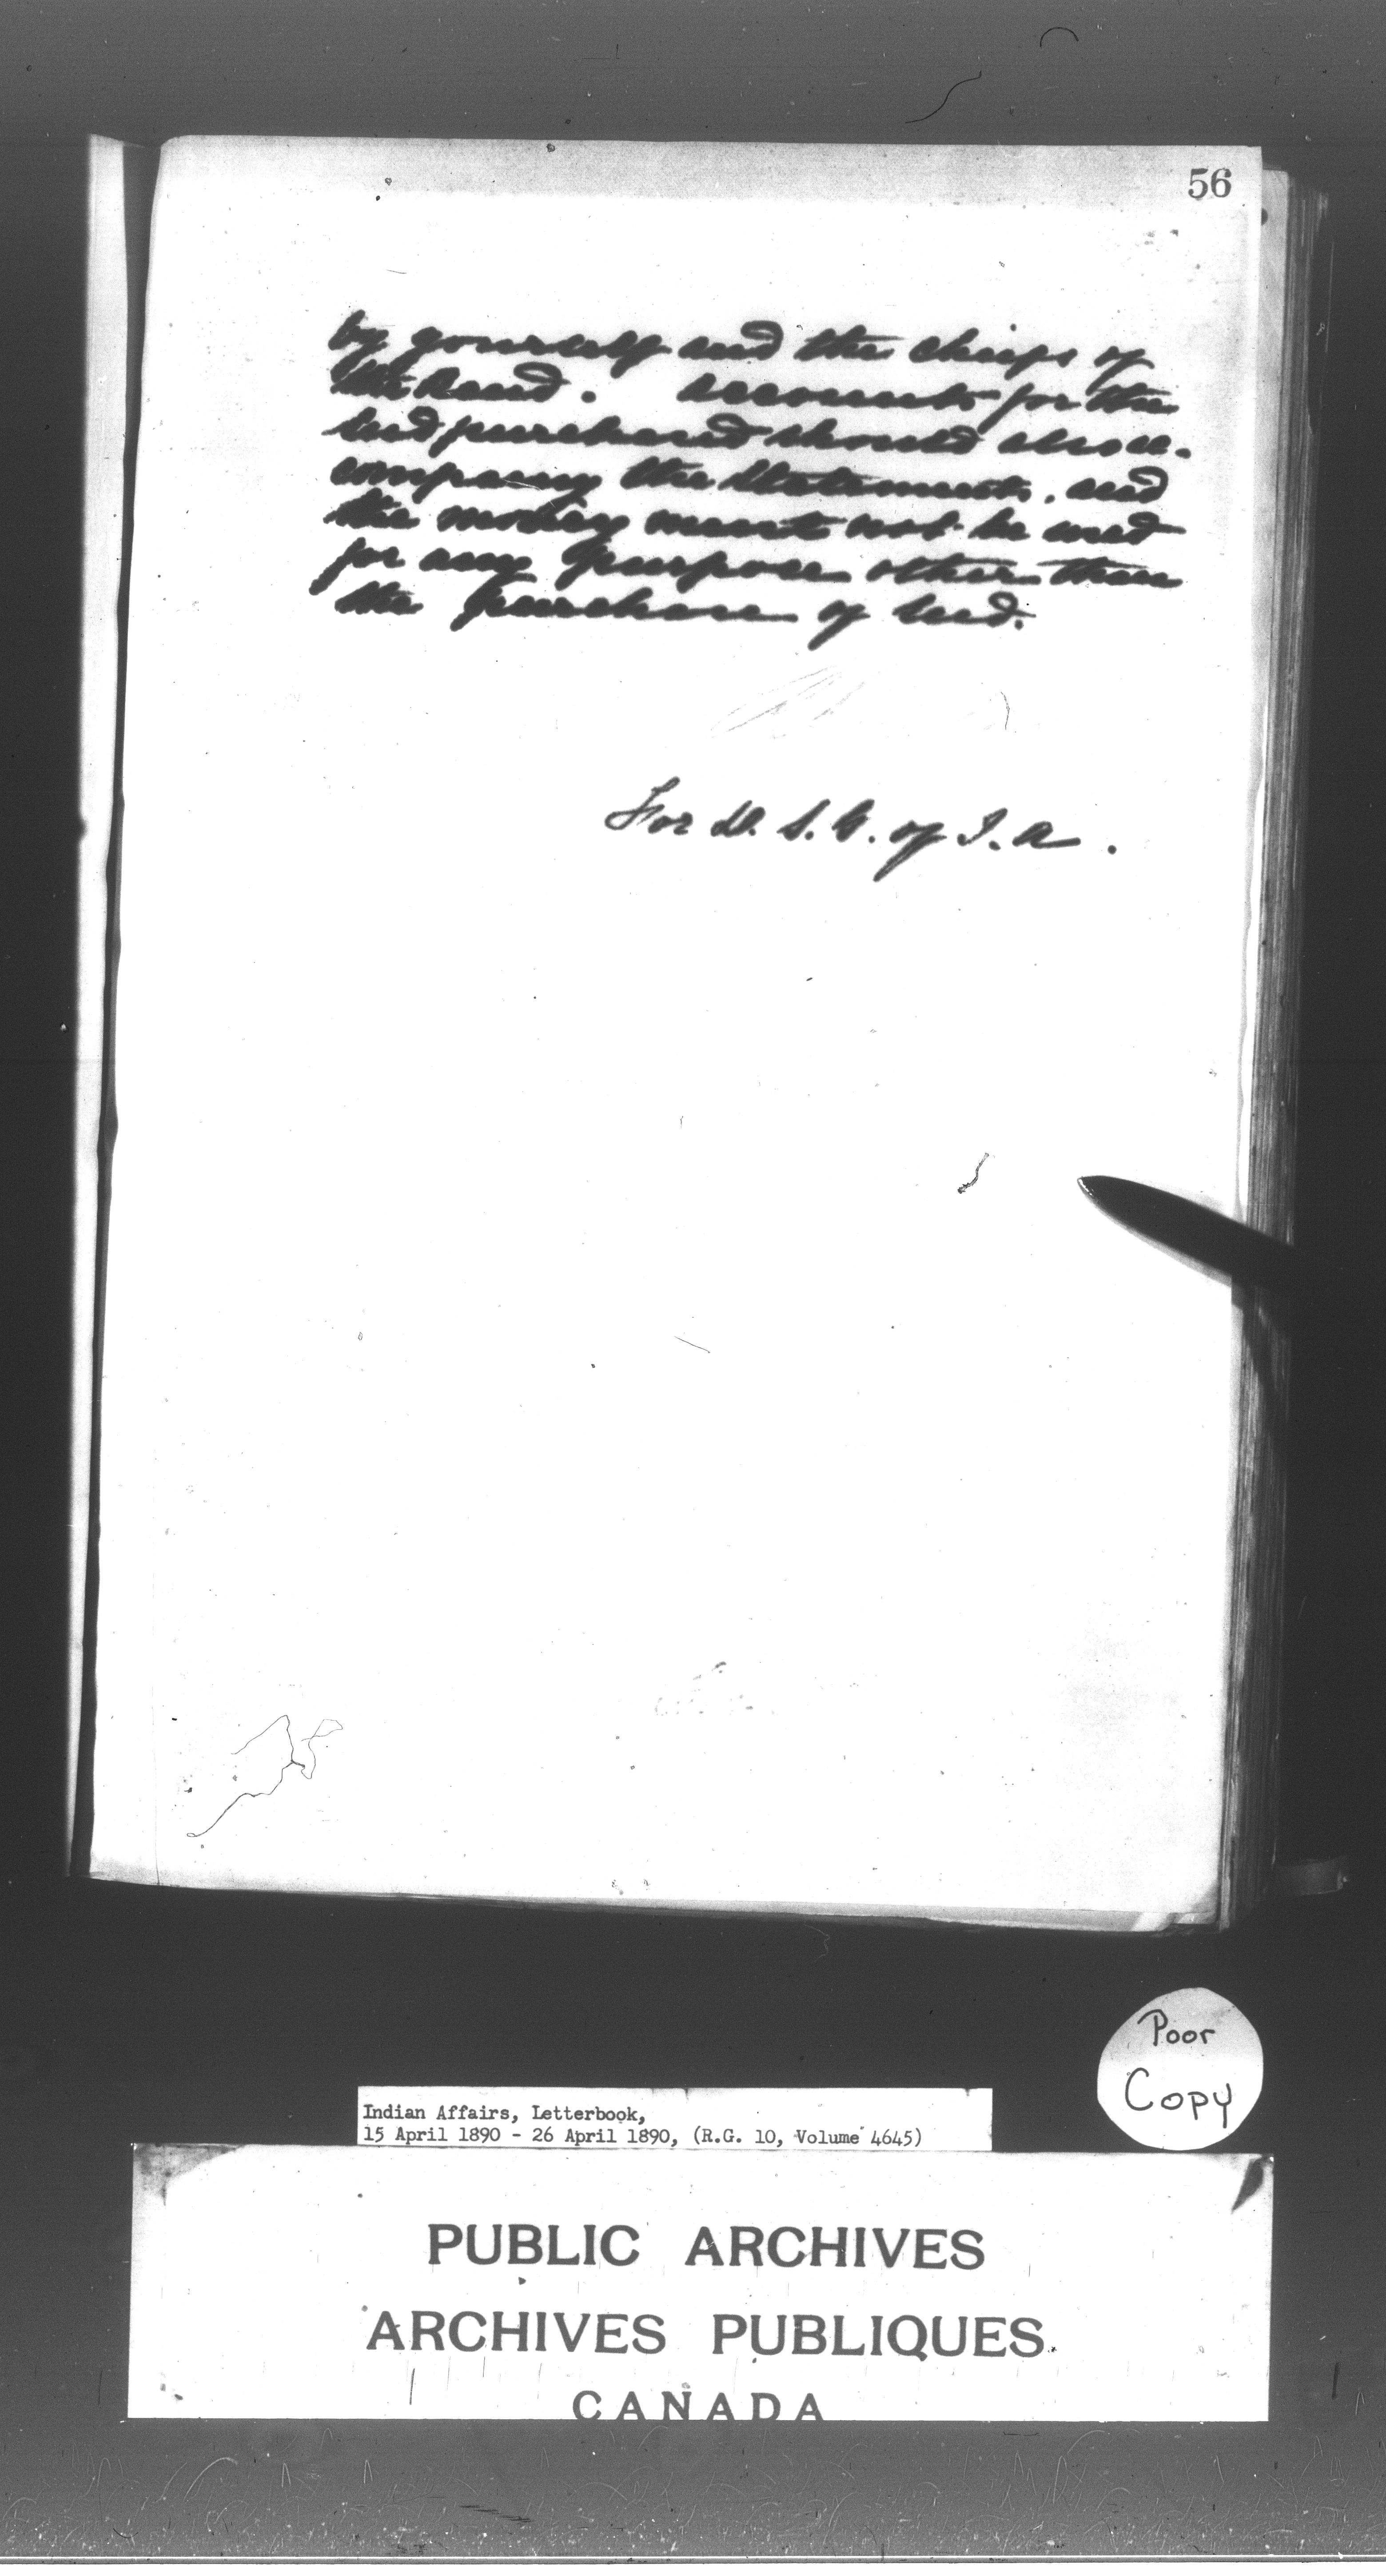 56
by yourself and the chiefs of
the Band. Accounts for the
seed purchased should also ac-
company the Statements, and
the money must not be used
for any purpose other than
the purchase of seed.
For D. S. G. of I. A.
Poor
Copy
Indian Affairs, Letterbook,
15 April 1890 - 26 April 1890, (R.G. 10, Volume 4645)
PUBLIC ARCHIVES
ARCHIVES PUBLIQUES
CANADA